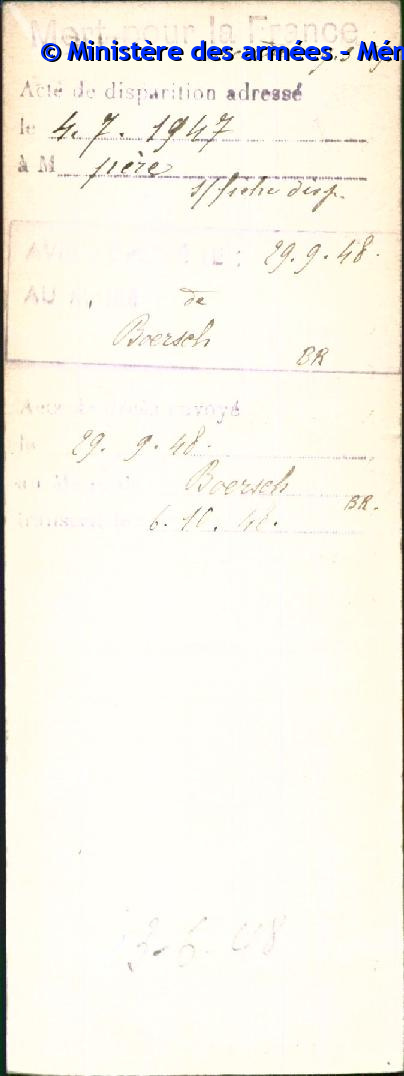 Mort pour la France
© Ministère des armées - Mém
Acte de disparition adressé
le 4.7.1947
à M père
s/fiche disp.
29.9.48.
AU de
Boersch
BR
Acte de décès envoyé
le 29.9.48.
Boersch
BR.
transcrit le 6.10.48.
3-6-48